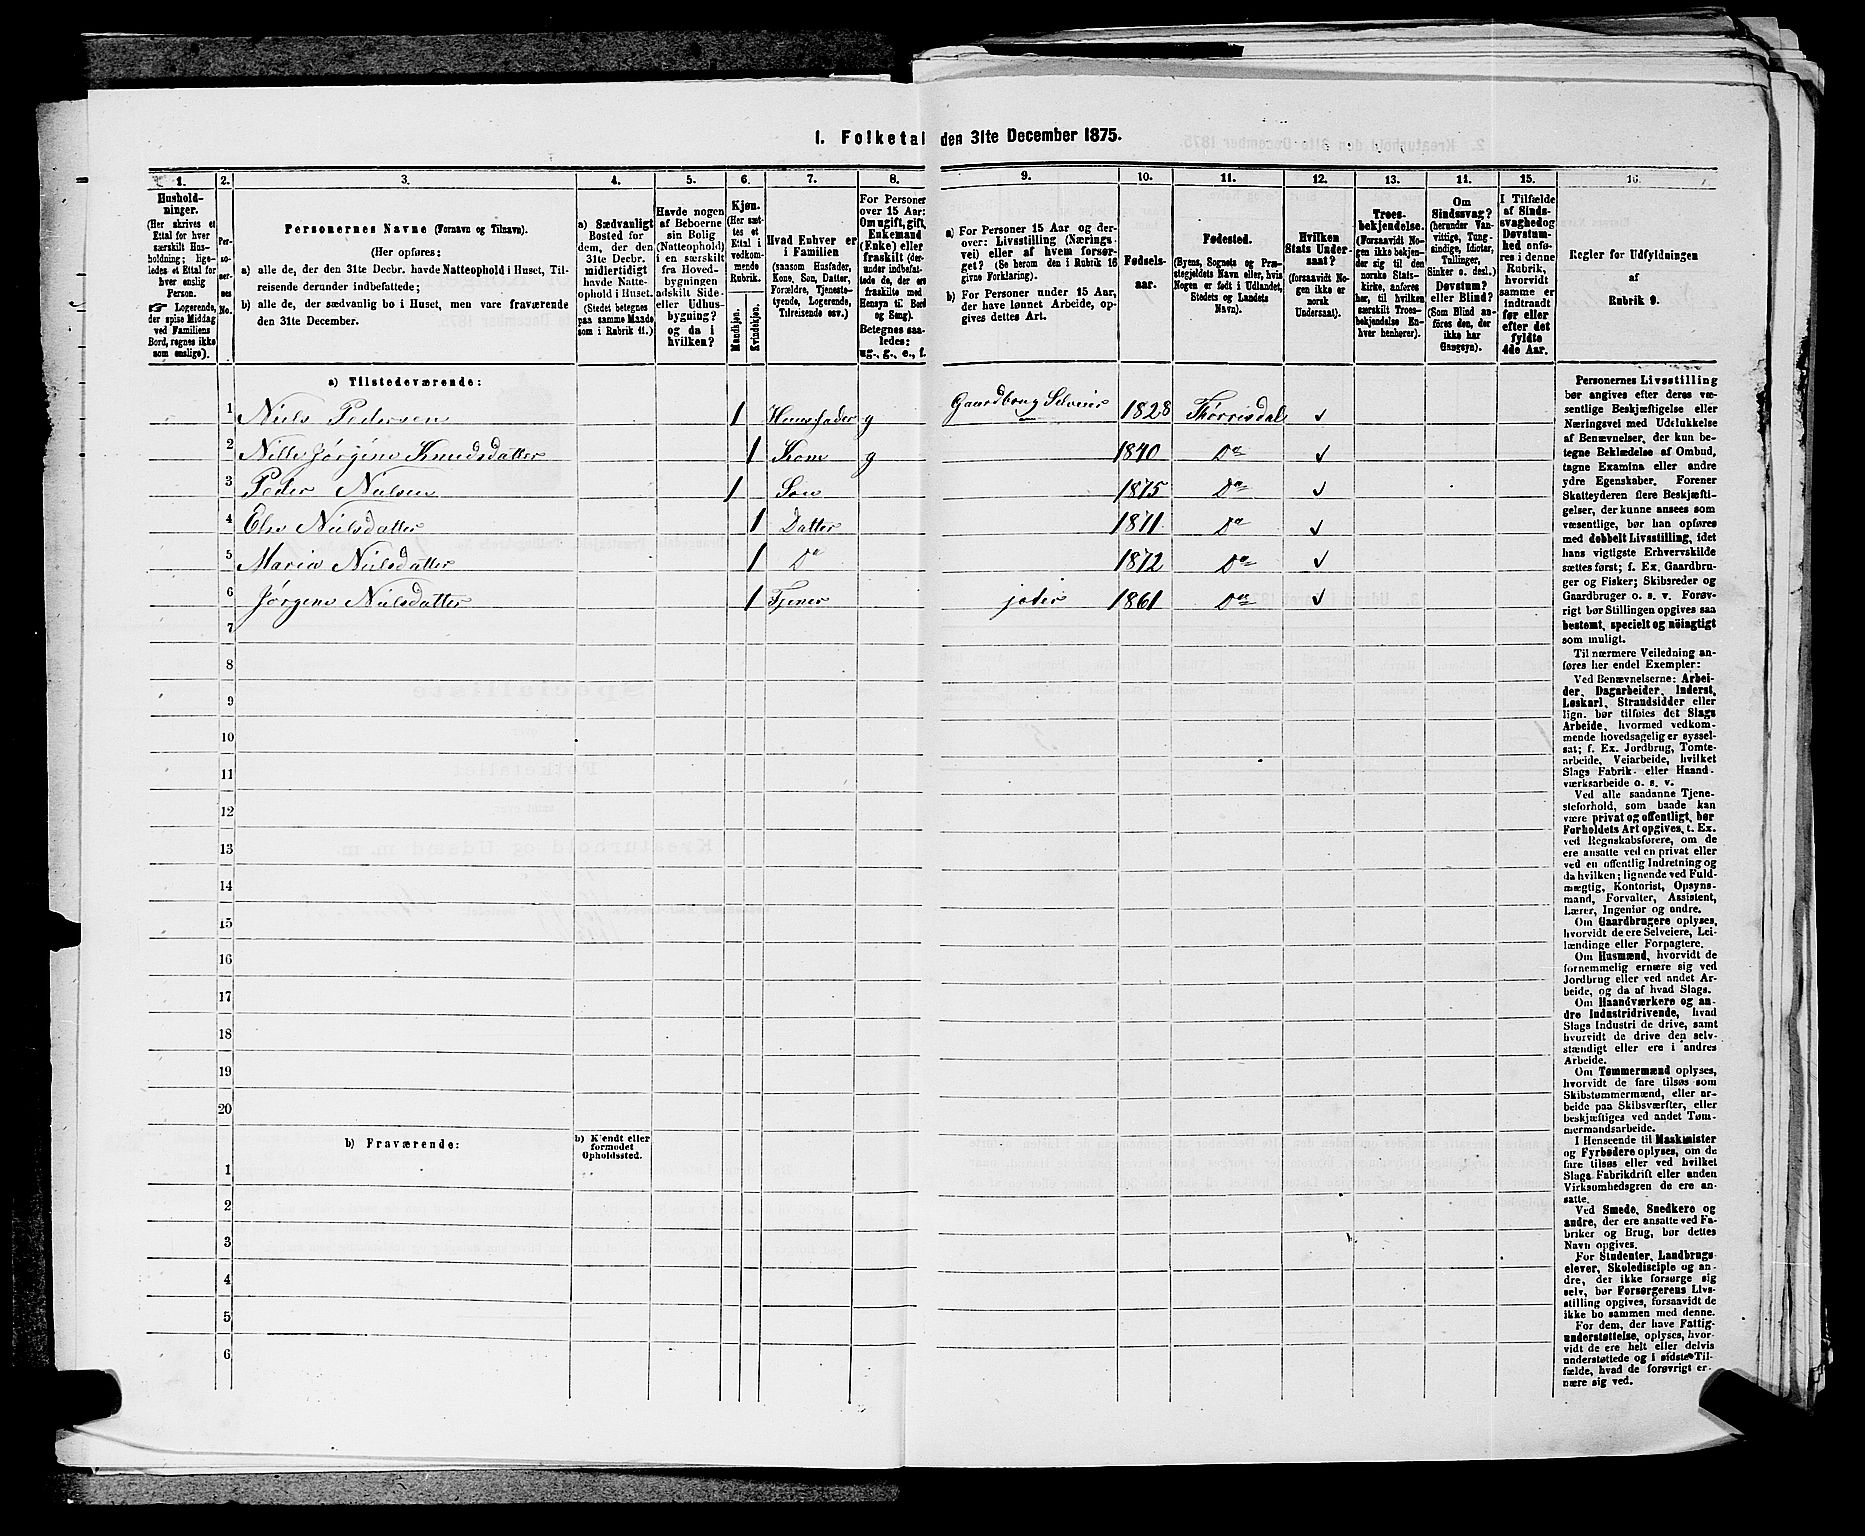 1. Folketal den 31te December 1875.
1. 2. 3. 4. 5. 6. 7. 8. 9. 10. 11. 12. 13. 11. 15. 16.
Hushold-
ninger.
(Her skrives et
Ettal for hver
særskilt Hus-
holdning; lige-
ledes et Ettal for
hver enslig
Person.
☞ Logerende,
der spise Middag
ved Familiens
Bord, regnes ikke
som enslige).
Per-
soner-
nes
No.
Personernes Navne (Fornavn og Tilnavn).
(Her opføres:
a) alle de, der den 31te Decbr. havde Natteophold i Huset, Til-
reisende derunder indbefattede;
b) alle de, der sædvanlig bo i Huset, men vare fraværende
den 31te December.
a) Sædvanligt
Bosted for
dem, der den
31te Decbr.
midlertidigt
havde Natte-
ophold i Huset.
(Stedet betegnes
paa samme Maade
som i Rubrik 11.)
Havde nogen
af Beboerne
sin Bolig
(Natteophold)
i en særskilt
fra Hoved-
bygningen
adskilt Side-
eller Udhus-
bygning?
og da i
hvilken?
Kjøn.
(Her sæt-
tes et
Ettal i
vedkom-
mende
Rubrik.
Mandkjøn.
Kvindekjøn.
Hvad Enhver er
i Familien
(saasom Husfader,
Kone, Søn, Datter,
Forældre, Tjeneste-
tyende, Logerende,
Tilreisende osv.)
For Personer
over 15 Aar:
Om ugift, gift,
Enkemand
(Enke) eller
fraskilt (der-
under indbefat-
tede de, der ere
fraskilte med
Hensyn til Bord
og Seng).
Betegnes saa-
ledes:
ug., g., e., f.
a) For Personer 15 Aar og der-
over: Livsstilling (Nærings-
vei) eller af hvem forsør-
get? (Se herom den i Rubrik 16
givne Forklaring).
b) For Personer under 15 Aar,
der have lønnet Arbeide, op-
gives dettes Art.
Fødsels-
aar.
Fødested.
(Byens, Sognets og Præ-
stegjeldets Navn eller, hvis
Nogen er født i Udlandet,
Stedets og Landets
Navn).
Hvilken
Stats Under-
saat?
(forsaavidt No-
gen ikke er
norsk
Undersaat).
Troes-
bekjendelse.
(Forsaavidt No-
gen ikke bekjen-
der sig til den
norske Stats-
kirke, anføres
her, til hvilken
særskilt Troes-
bekjendelse En-
hver henhører).
Om
Sindssvag?
(herunder Van-
vittige, Tung-
sindige, Idioter,
Tullinger,
Sinker o. desl.)
Døvstum?
eller Blind?
(Som Blind an-
føres den, der
ikke har
Gangsyn).
I Tilfælde
af Sinds-
svaghed og
Døvstum-
hed anfø-
res i denne
Rubrik,
hvorvidt
samme er
indtraadt
før eller
efter det
fyldte
4de Aar.
Regler for Udfyldningen
af
Rubrik 9.
a) Tilstedeværende:
1 Niels Pedersen 1 Huusfader g Gaardbrug Selveier 1828 Thørrisdal ✓
2 Nille Jørgine Knudsdatter 1 Kone g 1840 Do ✓
3 Peder Nielsen 1 Søn 1875 Do ✓
4 Else Nielsdatter 1 Datter 1871 Do ✓
5 Maria Nielsdatter 1 Do 1872 Do ✓
6 Jørgine Nielsdatter 1 Tjener 1861 Do ✓
7
8
9
10
11
12
13
14
15
16
17
18
19
20
b) Fraværende:
b) Kjendt eller
formodet
Opholdssted.
1
2
3
4
5
6
Personernes Livsstilling
bør angives efter deres væ-
sentlige Beskjæftigelse eller
Næringsvei med Udelukkelse
af Benævnelser, der kun be-
tegne Beklædelse af Ombud,
tagne Examina eller andre
ydre Egenskaber. Forener
Skatteyderen flere Beskjæfti-
gelser, der kunne ansees som
væsentlige, bør han opføres
med dobbelt Livsstilling, idet
hans vigtigste Erhvervskilde
sættes først; f. Ex. Gaardbru-
ger og Fisker; Skibsreder og
Gaardbruger o. s. v. Forøv-
rigt bør Stillingen opgives saa
bestemt, specielt og nøiagtigt
som muligt.
Til nærmere Veiledning an-
føres her endel Exempler:
Ved Benævnelserne: Arbei-
der, Dagarbeider, Inderst,
Løskarl, Strandsidder eller
lign. bør tilføies det Slags
Arbeide, hvormed vedkom-
mende hovedsagelig er syssel-
sat; f. Ex. Jordbrug, Tomte-
arbeide, Veiarbeide, hvilket
Slags Fabrik- eller Haand-
værksarbeide o. s. v.
Ved alle saadanne Tjene-
steforhold, som baade kan
være privat og offentligt, bør
Forholdets Art opgives, t. Ex.
ved Regnskabsførere, om de
ere ansatte ved en privat eller
ved en offentlig Indretning og
da hvilken; lignende ved Fuld-
mægtig, Kontorist, Opsyns-
mand, Forvalter, Assistent,
Lærer, Ingeniør og andre.
Om Gaardbrugere oplyses,
hvorvidt de ere Selveiere, Lei-
lændinge eller Forpagtere.
Om Husmænd, hvorvidt de
fornemmelig ernære sig ved
Jordbrug eller ved andet Ar-
beide, og da af hvad Slags.
Om Haandværkere og an-
dre Industridrivende, hvad
Slags Industri de drive, samt
hvorvidt de drive den selv-
stændigt eller ere i andres
Arbeide.
Om Tømmermænd oplyses,
hvorvidt de fare tilsøs som
Skibstømmermænd, eller ar-
beide paa Skibsværfter, eller
beskjæftiges ved andet Tøm-
mermandsarbeide.
I Henseende til Maskinister
og Fyrbødere oplyses, om de
fare tilsøs eller ved hvilket
Slags Fabrikdrift eller anden
Virksomhedsgren de ere an-
satte.
Ved Smede, Snedkere og
andre, der ere ansatte ved Fa-
briker og Brug, bør dettes
Navn opgives.
For Studenter, Landbrugs-
elever, Skoledisciple og an-
dre, der ikke forsørge sig
selv, bør Forsørgerens Livs-
stilling opgives, forsaavidt de
ikke bo sammen med denne.
For dem, der have Fattig-
understøttelse, oplyses, hvor-
vidt de ere helt eller delvis
understøttede og i sidste Til-
fælde, hvad de forøvrigt er-
nære sig ved.